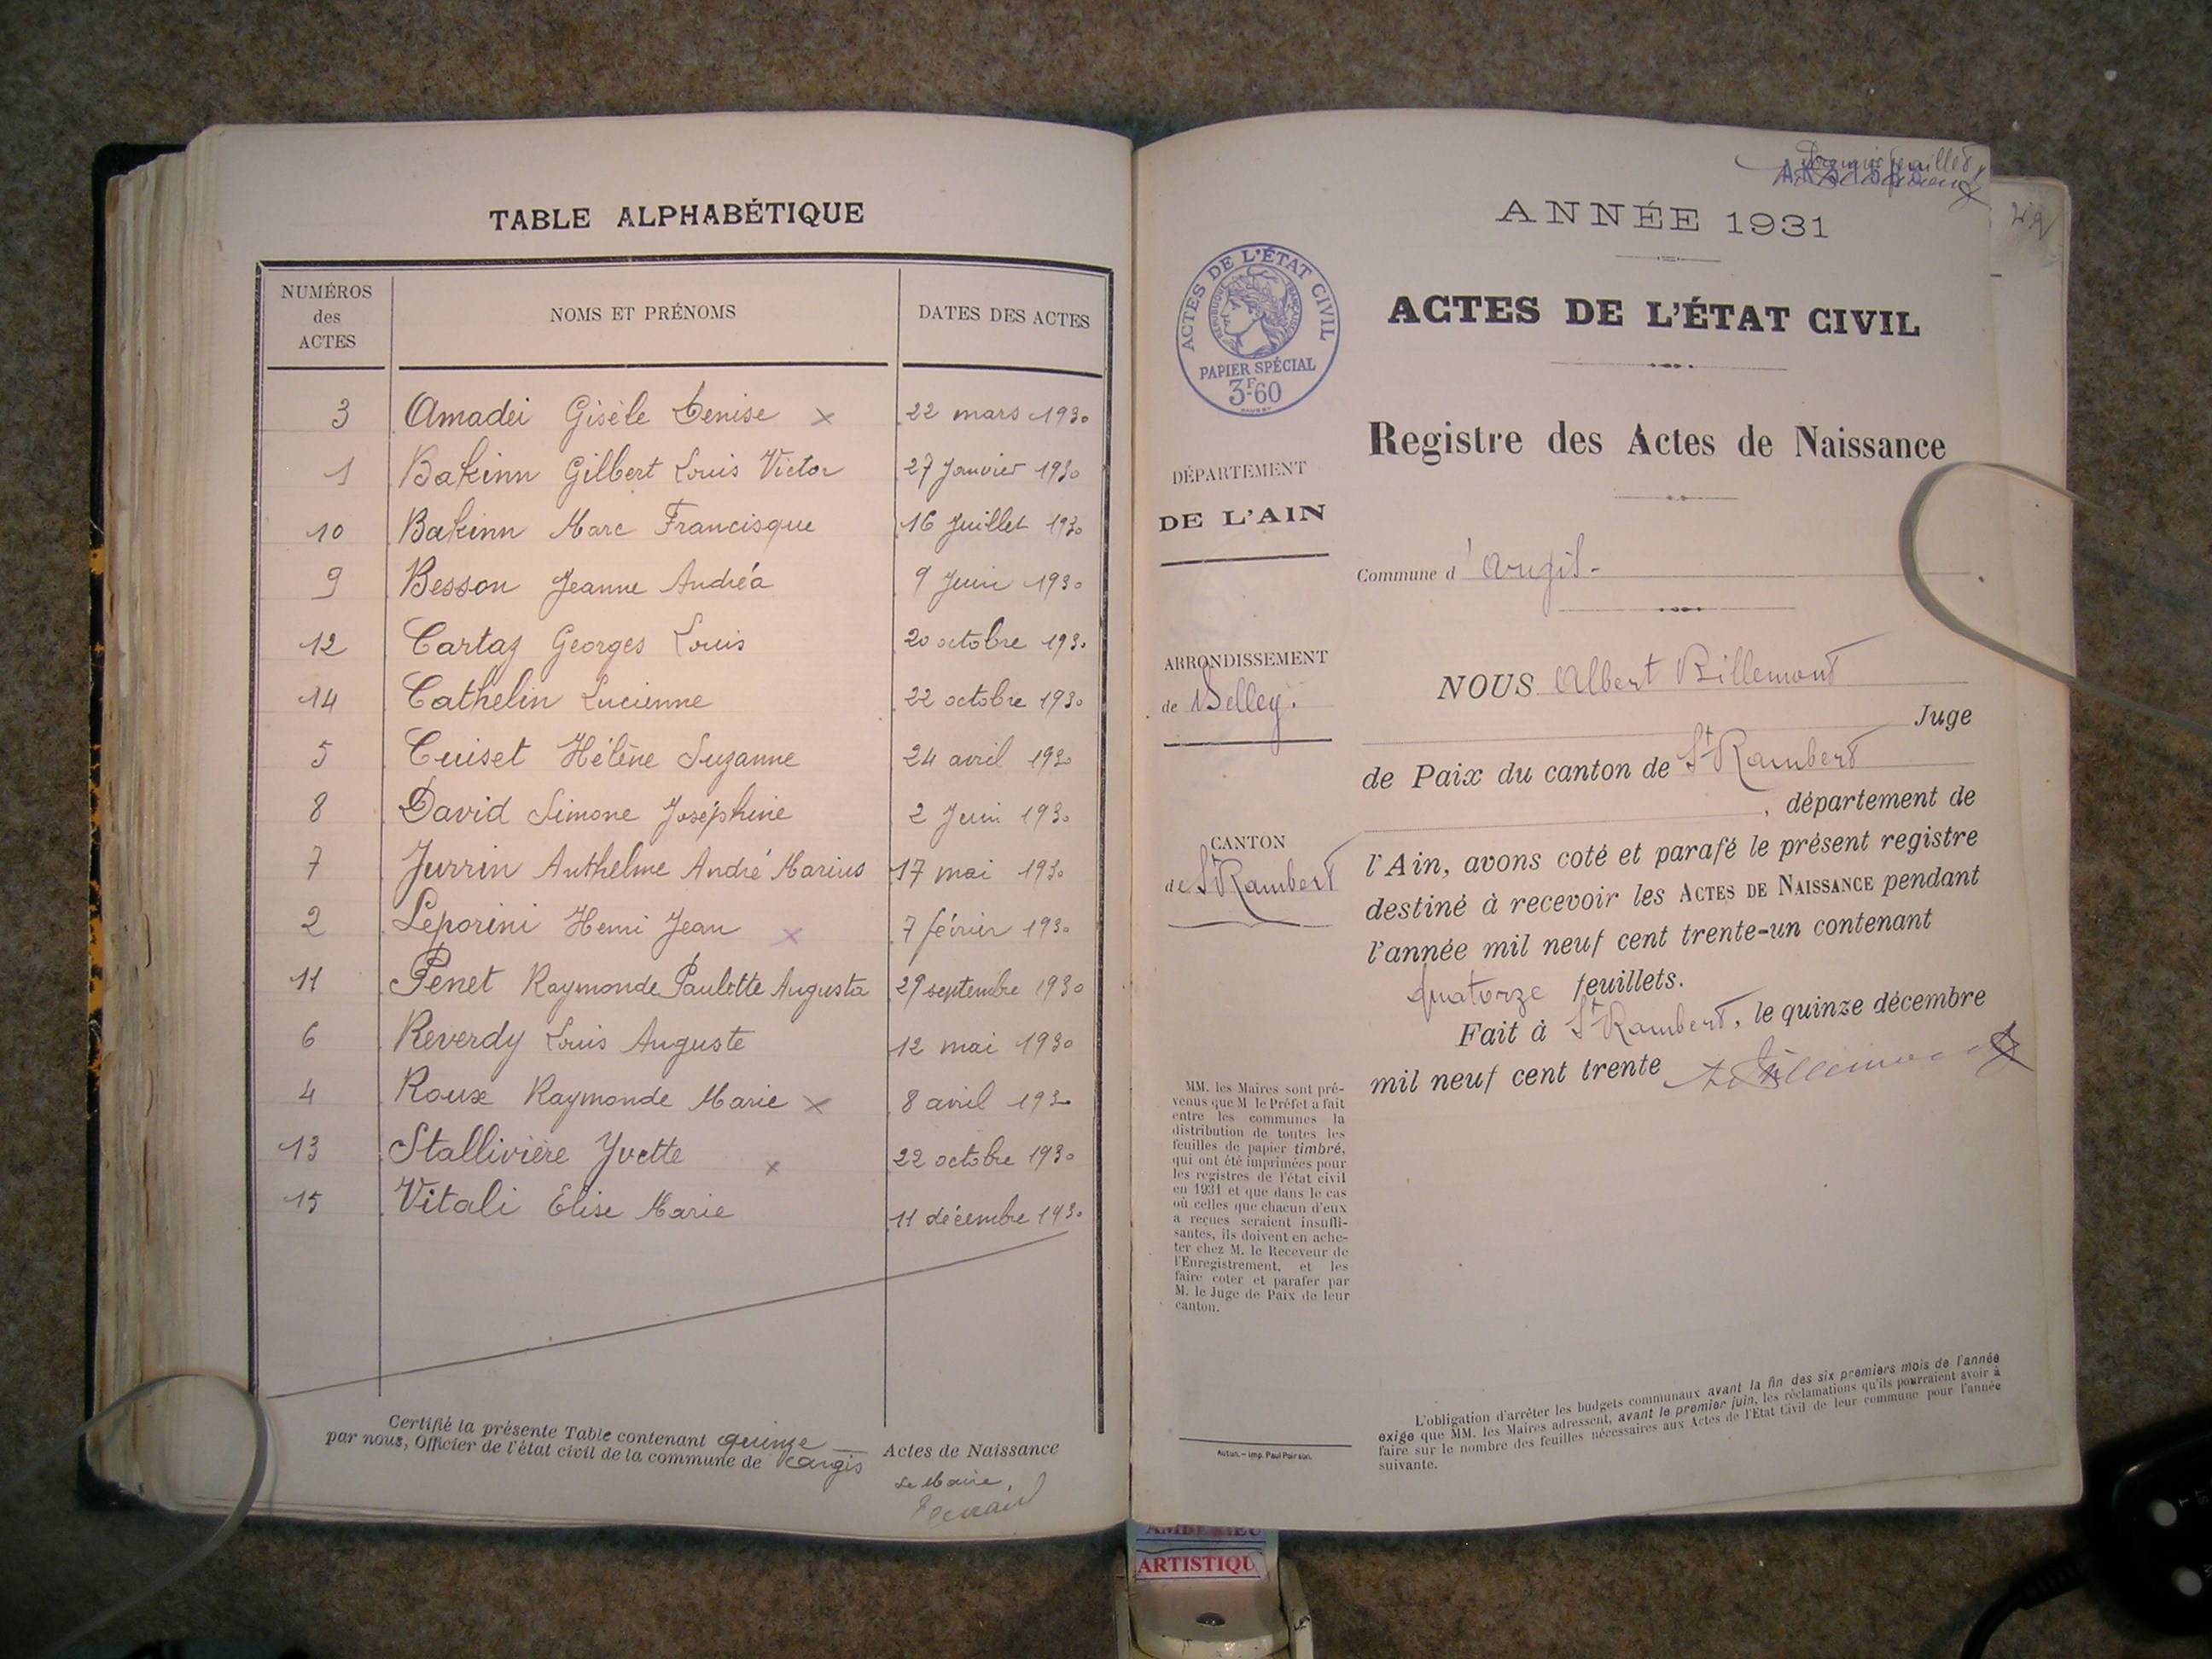 TABLE ALPHABÉTIQUE
NUMÉROS des ACTES NOMS ET PRÉNOMS DATES DES ACTES
3 Amadei Gisèle Denise x 22 mars 1930
1 Bakinn Gilbert Louis Victor 27 Janvier 1930
10 Bakinn Marc Francisque 16 Juillet 1930
9 Besson Jeanne Andréa 9 Juin 1930
12 Cartaz Georges Louis 20 octobre 1930
14 Cathelin Lucienne 22 octobre 1930
5 Cuiset Hélène Suzanne 24 avril 1930
8 David Simone Joséphine 2 Juin 1930
7 Jurrin Anthelme André Marius 17 mai 1930
2 Leporini Henri Jean x 7 février 1930
11 Penet Raymonde Paulette Augusta 29 septembre 1930
6 Reverdy Louis Auguste 12 mai 1930
4 Roux Raymonde Marie x 8 avril 1930
13 Stallivière Yvette x 22 octobre 1930
15 Vitali Elise Marie 11 décembre 1930
Certifié la présente Table contenant quinze Actes de Naissance
par nous, Officier de l'état civil de la commune de Argis
Le Maire,
ANNÉE 1931
ACTES DE L'ÉTAT CIVIL
RÉPUBLIQUE FRANÇAISE
PAPIER SPÉCIAL
3F.60
ACTES DE L'ÉTAT CIVIL
Registre des Actes de Naissance
DÉPARTEMENT
DE L'AIN
Commune d'Argis.
ARRONDISSEMENT
de Belley.
CANTON
de St Rambert
NOUS Albert Billemont
Juge
de Paix du canton de St Rambert
, département de
l'Ain, avons coté et parafé le présent registre
destiné à recevoir les ACTES DE NAISSANCE pendant
l'année mil neuf cent trente-un contenant
quatorze feuillets.
Fait à St Rambert, le quinze décembre
mil neuf cent trente
MM. les Maires sont pré-
venus que M le Préfet a fait
entre les communes la
distribution de toutes les
feuilles de papier timbré,
qui ont été imprimées pour
les registres de l'état civil
en 1931 et que dans le cas
où celles que chacun d'eux
a reçues seraient insuffi-
santes, ils doivent en ache-
ter chez M. le Receveur de
l'Enregistrement, et les
faire coter et parafer par
M. le Juge de Paix de leur
canton.
Autun. – Imp. Paul Poirson.
L'obligation d'arrêter les budgets communaux avant la fin des six premiers mois de l'année
exige que MM. les Maires adressent, avant le premier juin, les réclamations qu'ils pourraient avoir à
faire sur le nombre des feuilles nécessaires aux Actes de l'Etat Civil de leur commune pour l'année
suivante.
ARTISTIQU